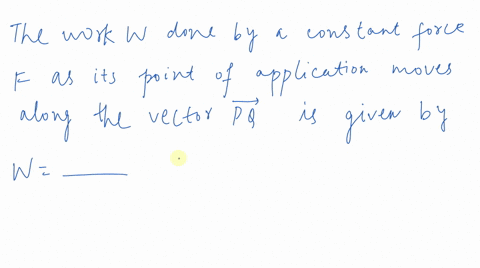 The work W done by a constant force
F as its point of application moves
along the vector PQ⃗ is given by
W = ______